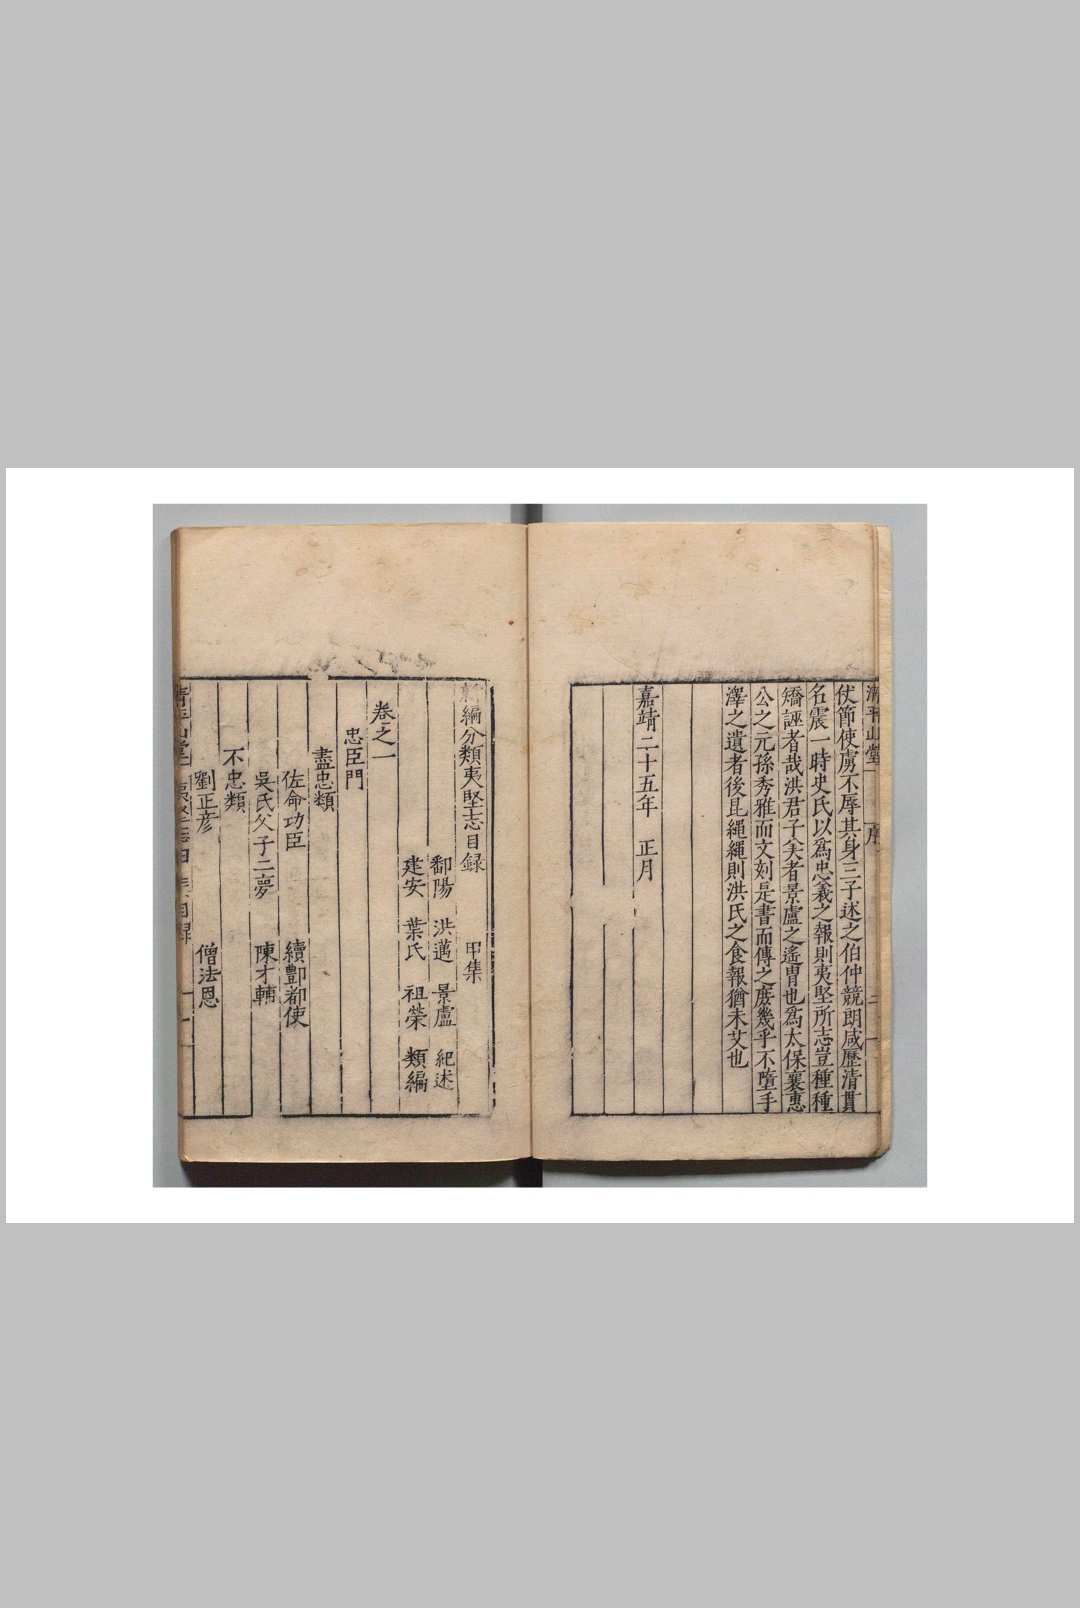 清平山堂 序 二
仗節使虜不辱其身三子述之伯仲競朗咸歷清貫
名震一時史氏以為忠義之報則夷堅所志豈種種
矯誣者哉洪君子美者景盧之遙胄也為太保襄惠
公之元孫秀雅而文刻是書而傳之庶幾乎不墮手
澤之遺者後昆繩繩則洪氏之食報猶未艾也
嘉靖二十五年 正月
新編分類夷堅志目録 甲集
鄱陽 洪邁 景盧 紀述
建安 葉氏 祖榮 類編
卷之一
忠臣門
盡忠類
佐命功臣 續酆都使
吳氏父子二夢 陳才輔
不忠類
劉正彦 僧法恩
清平山堂 夷堅志甲集目録 一